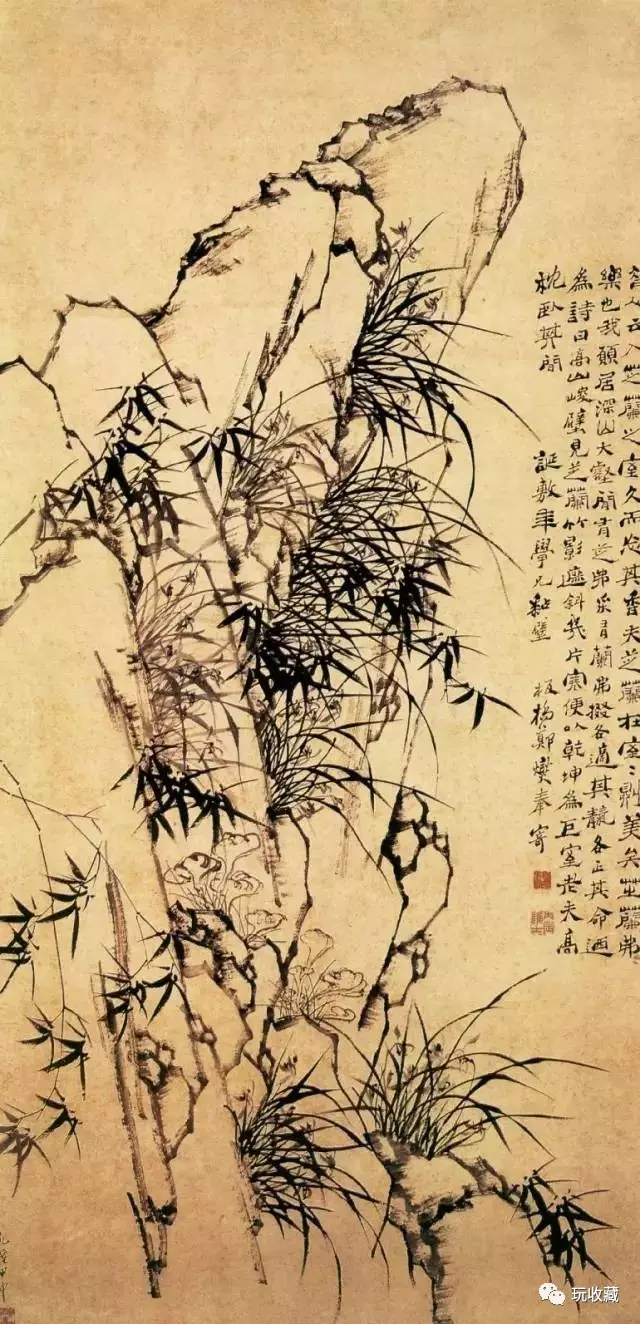 昔人云入芝蘭之室久而忘其香夫芝蘭在室〻則美矣芝蘭弗
樂也我願居深山大壑間有芝弗采有蘭弗掇各適其各正其命迺
為詩曰高山峻壁見芝蘭竹影遮斜幾片寒便以乾坤為巨室老夫高
枕臥其間 誕敷年學兄 板橋鄭燮奉寄
玩收藏